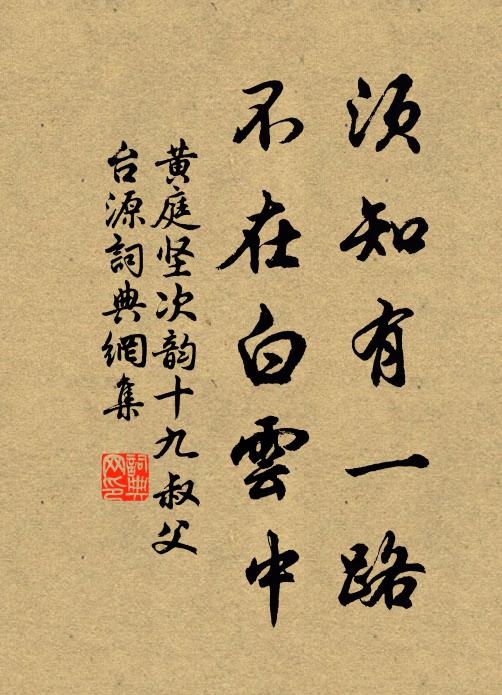 须知有一路
不在白雲中
黄庭坚次韵十九叔父
台源詞典網集
詞典
网印